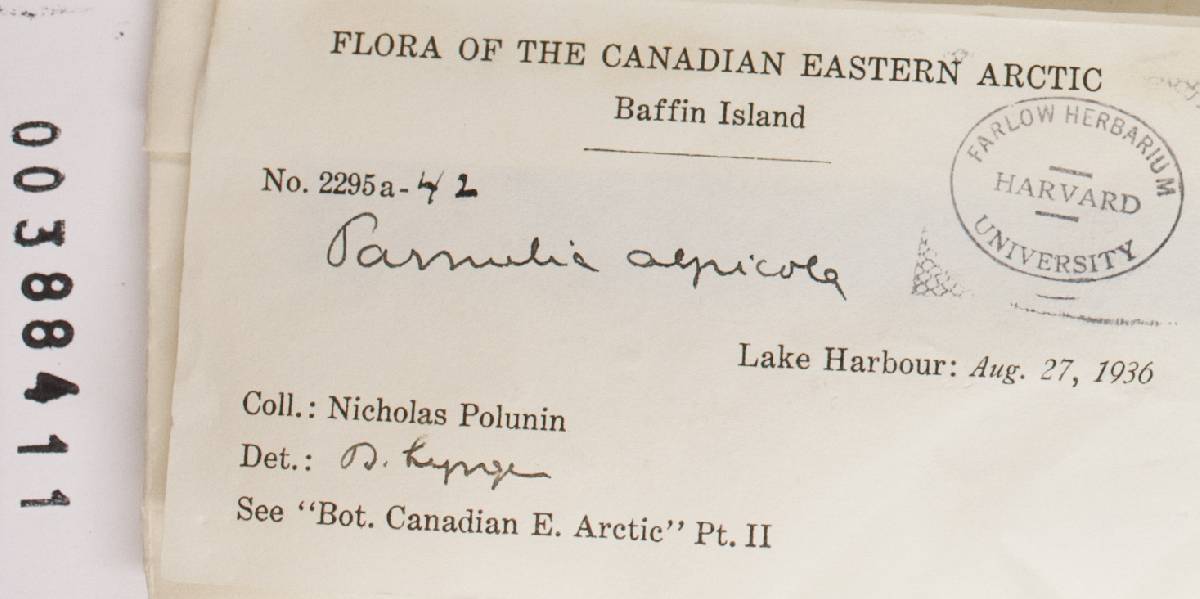 FLORA OF THE CANADIAN EASTERN ARCTIC
Baffin Island
No. 2295a-42
Parmelia alpicola
FARLOW HERBARIUM
HARVARD
UNIVERSITY
Lake Harbour: Aug. 27, 1936
Coll.: Nicholas Polunin
Det.: B. Lynge
See "Bot. Canadian E. Arctic" Pt. II
00388411